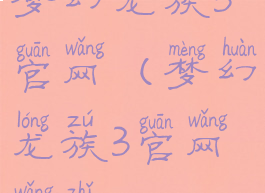 梦幻龙族3
guān wǎng mèng huàn
官网(梦幻
lóng zú guān wǎng
龙族3官网
wǎng zhǐ